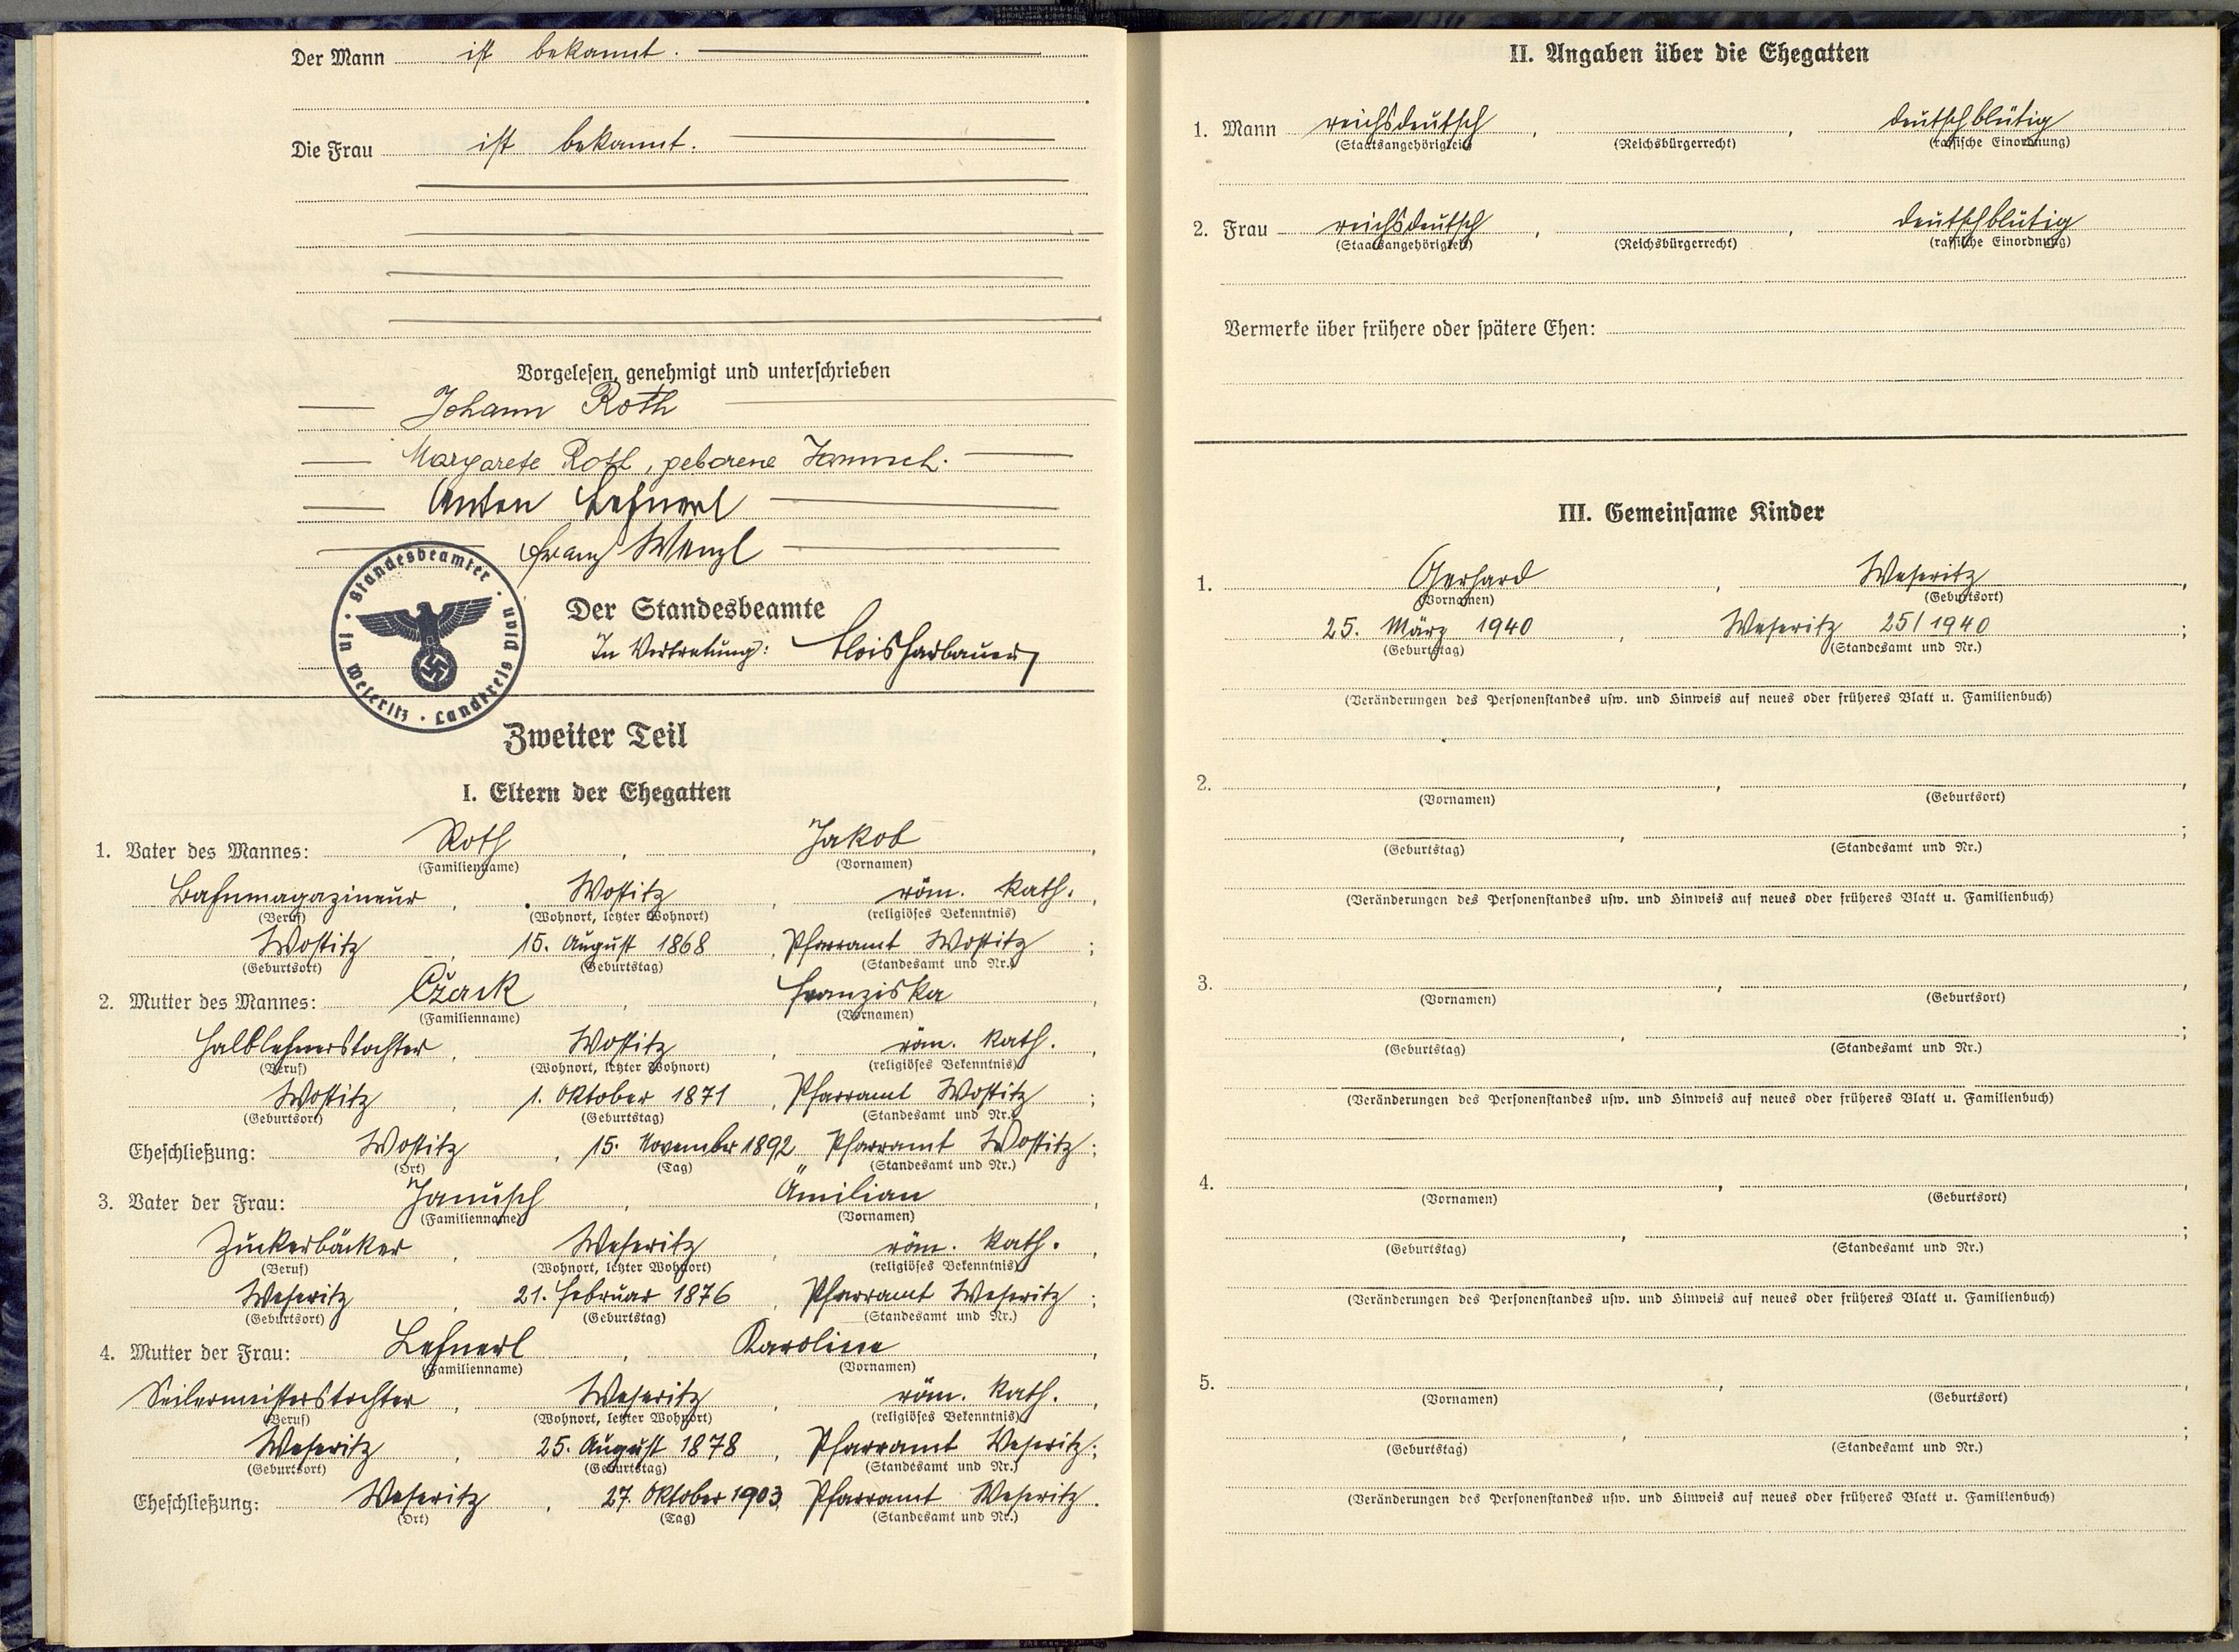 Der Mann ist bekannt.
Die Frau ist bekannt.
Vorgelesen, genehmigt und unterschrieben
Johann Roth
Margarete Roth, geborene Janusch.
Anton Lehnerl
Franz Wenzl
Standesbeamter · in Weseritz · Landkreis Plan
Der Standesbeamte
In Vertretung: Alois Harbauer
Zweiter Teil
I. Eltern der Ehegatten
1. Vater des Mannes: Roth, Jakob,
(Familienname) (Vornamen)
Bahnmagazineur, Wostitz, röm. kath.,
(Beruf) (Wohnort, letzter Wohnort) (religiöses Bekenntnis)
Wostitz, 15. August 1868, Pfarramt Wostitz;
(Geburtsort) (Geburtstag) (Standesamt und Nr.)
2. Mutter des Mannes: Czack, Franziska,
(Familienname) (Vornamen)
Halblehnerstochter, Wostitz, röm. kath.,
(Beruf) (Wohnort, letzter Wohnort) (religiöses Bekenntnis)
Wostitz, 1. Oktober 1871, Pfarramt Wostitz;
(Geburtsort) (Geburtstag) (Standesamt und Nr.)
Eheschließung: Wostitz, 15. November 1892 Pfarramt Wostitz;
(Ort) (Tag) (Standesamt und Nr.)
3. Vater der Frau: Janusch, Ämilian,
(Familienname) (Vornamen)
Zuckerbäcker, Weseritz, röm. kath.,
(Beruf) (Wohnort, letzter Wohnort) (religiöses Bekenntnis)
Weseritz, 21. Februar 1876, Pfarramt Weseritz;
(Geburtsort) (Geburtstag) (Standesamt und Nr.)
4. Mutter der Frau: Lehnerl, Karoline,
(Familienname) (Vornamen)
Seilermeisterstochter, Weseritz, röm. kath.,
(Beruf) (Wohnort, letzter Wohnort) (religiöses Bekenntnis)
Weseritz, 25. August 1878, Pfarramt Weseritz;
(Geburtsort) (Geburtstag) (Standesamt und Nr.)
Eheschließung: Weseritz, 27. Oktober 1903, Pfarramt Weseritz.
(Ort) (Tag) (Standesamt und Nr.)
II. Angaben über die Ehegatten
1. Mann reichsdeutsch, , deutschblütig
(Staatsangehörigkeit) (Reichsbürgerrecht) (rassische Einordnung)
2. Frau reichsdeutsch, , deutschblütig
(Staatsangehörigkeit) (Reichsbürgerrecht) (rassische Einordnung)
Vermerke über frühere oder spätere Ehen:
III. Gemeinsame Kinder
1. Gerhard, Weseritz,
(Vornamen) (Geburtsort)
25. März 1940, Weseritz 25/1940;
(Geburtstag) (Standesamt und Nr.)
(Veränderungen des Personenstandes usw. und Hinweis auf neues oder früheres Blatt u. Familienbuch)
2. , ,
(Vornamen) (Geburtsort)
, ;
(Geburtstag) (Standesamt und Nr.)
(Veränderungen des Personenstandes usw. und Hinweis auf neues oder früheres Blatt u. Familienbuch)
3. , ,
(Vornamen) (Geburtsort)
, ;
(Geburtstag) (Standesamt und Nr.)
(Veränderungen des Personenstandes usw. und Hinweis auf neues oder früheres Blatt u. Familienbuch)
4. , ,
(Vornamen) (Geburtsort)
, ;
(Geburtstag) (Standesamt und Nr.)
(Veränderungen des Personenstandes usw. und Hinweis auf neues oder früheres Blatt u. Familienbuch)
5. , ,
(Vornamen) (Geburtsort)
, ;
(Geburtstag) (Standesamt und Nr.)
(Veränderungen des Personenstandes usw. und Hinweis auf neues oder früheres Blatt u. Familienbuch)